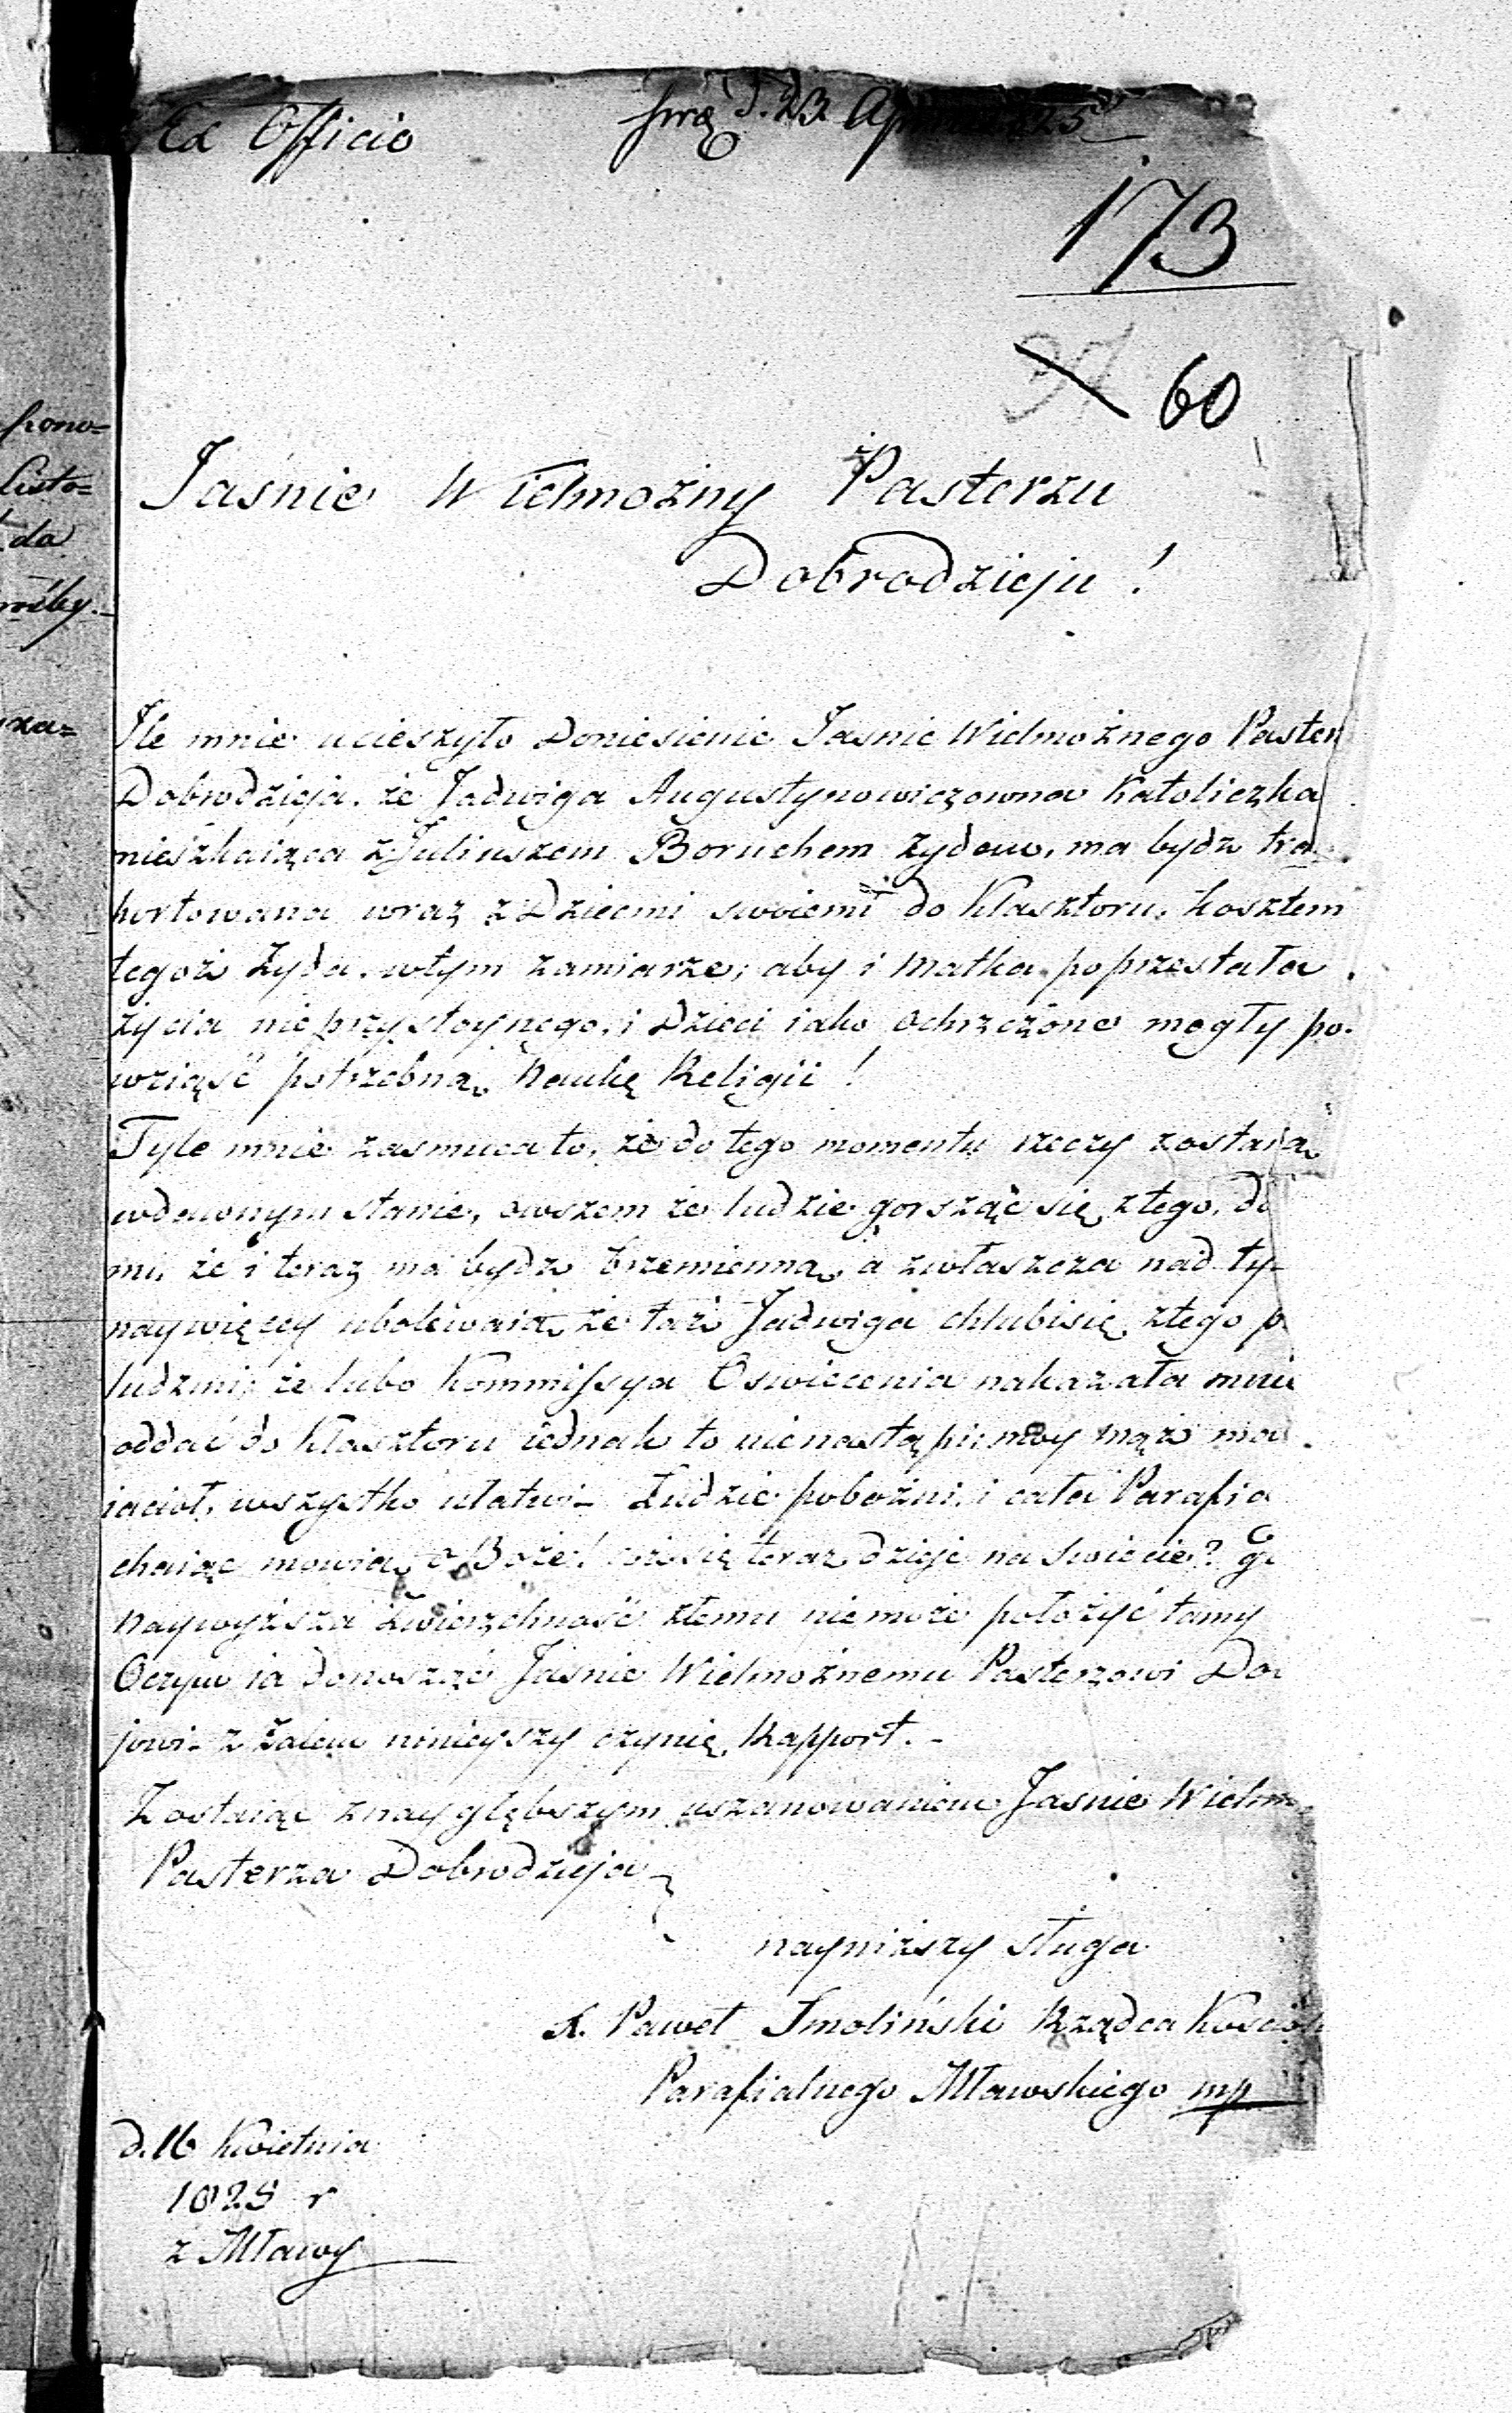 Ex Officio
d. 23 Ap 25
173
60
Jaśnie Wielmożny Pasterzu
Dobrodzieju!
Ile mnie ucieszyło doniesienie Jasnie Wielmożnego Paster
Dobrodzieja, że Jadwiga Augustynowiczowna Katoliczka
mieszkaiąca z Juliuszem Boruchem żydem, ma bydz tra
portowana wraz z Dziecmi swoiemi do Klasztoru, kosztem
tegoż Żyda, wtym zamiarze, aby i matka poprzestała
życia nieprzystoynego, i Dzieci iako ochrzczone mogły po-
wziąść potrzebną Naukę Religii!
Tyle mnie zasmuca to, że do tego momentu rzeczy zostaią
wdawnym stanie, owszem że ludzie gorsząc się ztego, do
mi, że i teraz ma bydz brzemienną, a zwłaszcza nad ty-
naywięcey ubolewaią, że taż Jadwiga chlubi się ztego p
ludzmi, że lubo Kommissya Oswiecenia nakazała mnie
oddać do Klasztoru iednak to nienastąpi, moy mąż ma
iacioł, wszystko ułatwi - Ludzie pobożni, i cała Parafia
chaiąc mowią, o Boże! coż się teraz dzieje na swiecie? G
Naywyższa Zwierzchność złemu niemoże położyć tamy
Oczym ia donosząc Jasnie Wielmożnemu Pasterzowi Do
jowi - z żalem ninieyszy czynię Rapport. -
Zostaiąc znaygłębszym uszanowaniem Jasnie Wielm
Pasterza Dobrodzieja
nayniższy sługa
X. Paweł Smoliński Rządca Kościoł
Parafialnego Mławskiego mp
d. 16 Kwietnia
1825 r
z Mławy
pono=
listo=
da
rośby.
za=